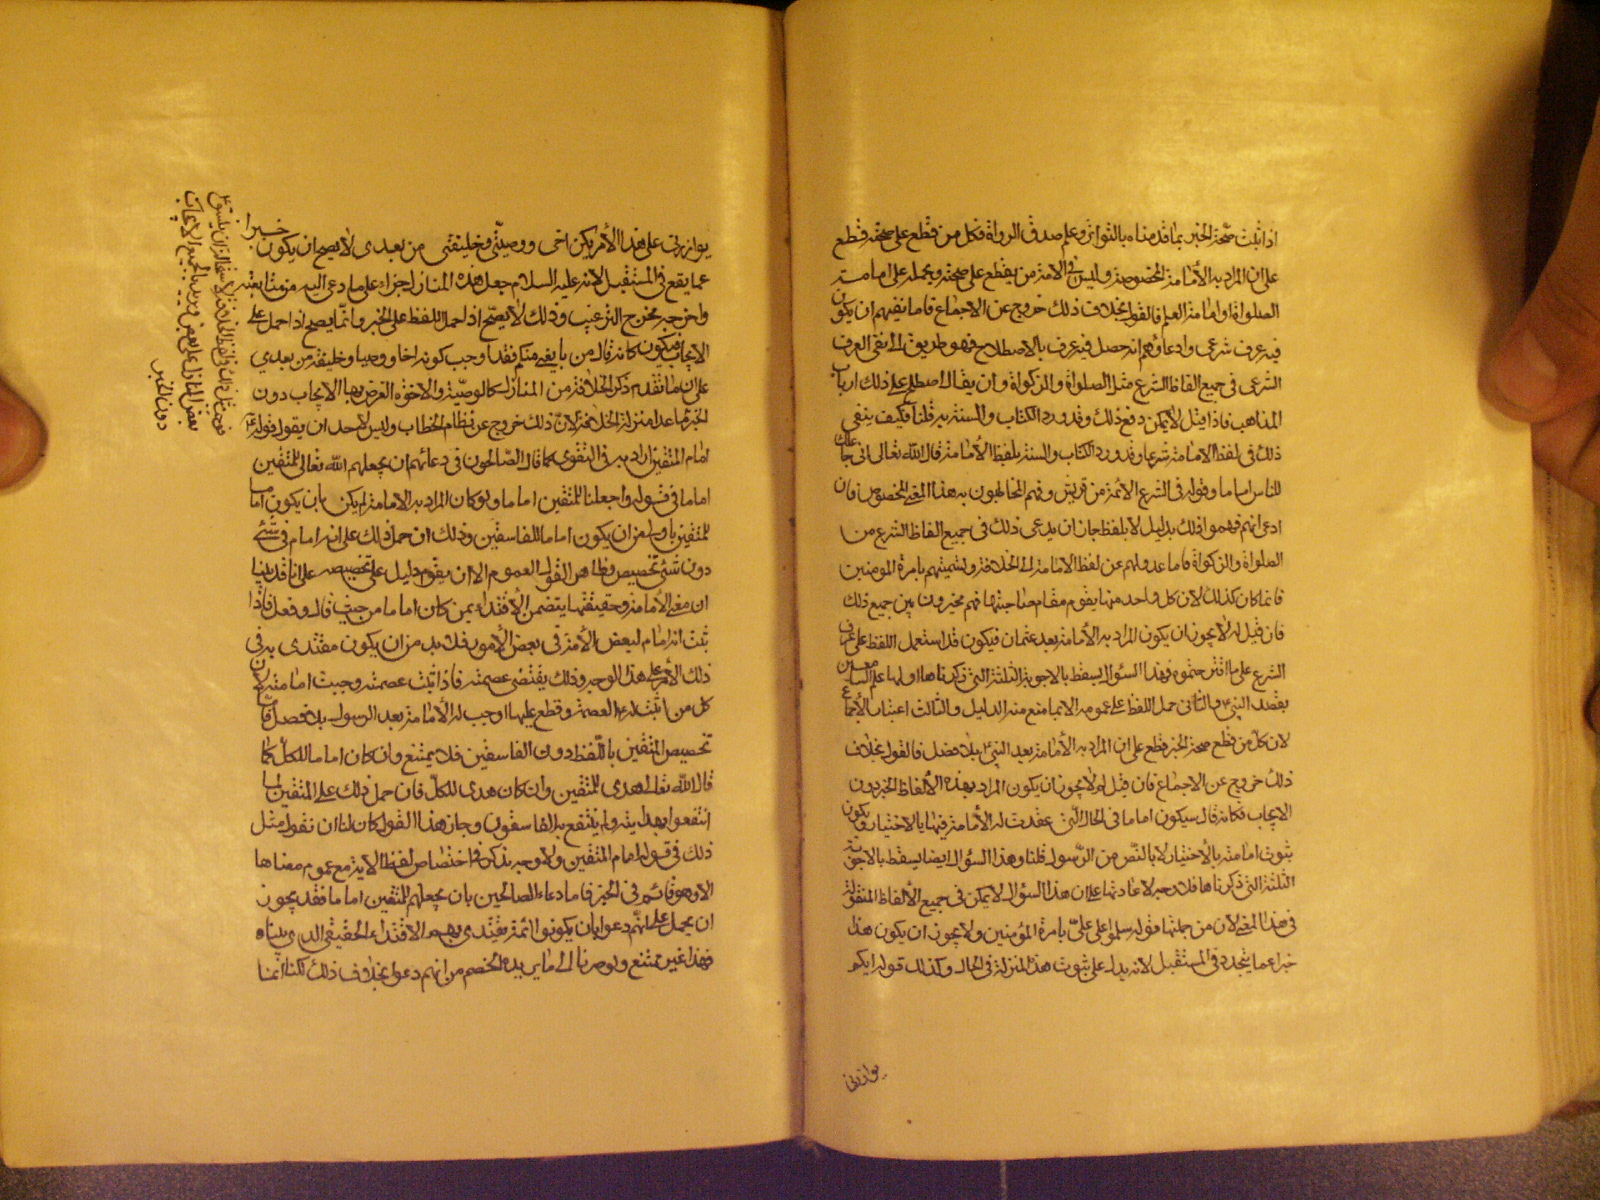 اذا ثبت صحّة الخبر بما قدمناه بالتواتر وعلم صدق الرواة فكل من قطع على صحته قطع
على ان المراد به الأمامة المخصوصة وليس في الامة من يقطع على صحته ويحمله على امامة
الصلواة او امامة العلم فالقول بخلاف ذلك خروج عن الاجماع فاما نفيهم ان يكون
فيه عرف شرعى وادعاؤهم انه حصل فيه عرف بالاصطلاح فهو طريق الى نفى العرف
الشرعى فى جميع الفاظ الشرع مثل الصلواة والزكواة وان يقال اصطلح على ذلك ارباب
المذاهب فاذا قيل لا يمكن دفع ذلك وقد ورد الكتاب والسنة به قلنا فكيف ينفى
ذلك فى لفظ الامامة شرعا وقد ورد الكتاب والسنة بلفظ الأمامة قال الله تعالى انى جاعلك
للناس اماما وقوله فى الشرع الائمة من قريش وفهم المخاطبون به هذا المعنى المخصوص فان
ادعى انهم فهموا ذلك بدليل لا بلفظ جاز ان يدعى ذلك فى جميع الفاظ الشرع من
الصلواة والزكواة فاما عدولهم عن لفظ الامامة الى الخلافة وتسميتهم بامرة المومنين
فانما كان كذلك لان كل واحد منها يقوم مقام صاحبتها فهم مخيرون بين جميع ذلك
فان قيل لم لا يجوز ان يكون المراد به الأمامة بعد عثمان فيكون قد استعمل اللفظ على عرف
الشرع على ما اقترحتموه فهذا السؤال يسقط بالاجوبة الثلثة التى ذكرناها اولها علم السامعين
بقصد النبي والثانى حمل اللفظ على عمومه الا ما منع منه الدليل والثالث اعتبار الأجماع
لان كلّ من قطع صحة الخبر قطع على ان المراد به الأمامة بعد النبي بلا فصل فالقول بخلاف
ذلك خروج عن الاجماع فان قيل لم لا يجوز ان يكون المراد بهذه الألفاظ الخبر دون
الايجاب فكانه قال سيكون اماما فى الحال التى عقدت له الأمامة فيها بالاختيار ويكون
ثبوت امامته بالأختيار لا بالنّص من الرّسول قلنا وهذا السؤال ايضا يسقط بالاجوبة
الثلثة التى ذكرناها فلا وجه لاعادتها على ان هذا السؤال لا يمكن فى جميع الألفاظ المنقولة
فى هذا المعنى لان من جملتها قوله سلموا على علىّ بامرة المؤمنين ولا يجوز ان يكون هذا
خبرا عما يتجدد فى المستقبل لانه يدل على ثبوت هذه المنزلة فى الحال وكذلك قوله ايكم
يوازرنى
يوازرنى على هذا الأمر يكن اخى ووصيّى وخليفتى من بعدى لا يصح ان يكون خبرا
عما يقع فى المستقبل لانه عليه السلام جعل هذه المنازل جزاء على ما دعى اليه من متابعته
واخرجه مخرج الترغيب وذلك لا يصح اذا حمل اللفظ على الخبر وانّما يصح اذا حمل على
الايجاب فيكون كانه قال من بايعنى منكم فقد اوجب كونه اخا ووصيا وخليفة من بعدى
على ان ما تقدم ذكر الخلافة من المنازل كالوصيّة والاخوّة الغرض بها الايجاب دون
الخبر فما عدا منزلة الخلافة لانّ ذلك خروج عن نظام الخطاب وليس لاحد ان يقول قوله
امام المتقين اراد به فى التقوى كما قال الصّالحون فى دعائهم ان يجعلهم الله تعالى للمتقين
اماما فى قوله واجعلنا للمتقين اماما ولو كان المراد به الامامة لم يكن بان يكون اماما
للمتقين باولى من ان يكون اماما للفاسقين وذلك ان حمل ذلك على انه امام فى شئ
دون شئ تخصيص وظاهر القول العموم الا ان يقوم دليل على تخصيصه على انا قد بينا
ان معنى الأمامة وحقيقتها يتضمن الأقتداء بمن كان اماما من حيث قال وفعل فاذا
ثبت انه امام لبعض الأمة فى بعض الأمور فلا بد من ان يكون مقتدى به فى
ذلك الأمر على هذا الوجه وذلك يقتضى عصمته فاذا ثبت عصمته وجبت امامته لان
كل من اثبت له العصمة وقطع عليها اوجب له الأمامة بعد الرسول بلا فصل فاما
تخصيص المتقين باللّفظ دون الفاسقين فلا يمتنع وان كان اماما للكل كما
قال الله تعالى هدى للمتقين وان كان هدى للكلّ فان حمل ذلك على المتقين لما
انتفعوا بهدايته ولم ينتفع به الفاسقون وجاز هذا القول كان لنا ان نقول مثل
ذلك فى قوله امام المتقين ولا وجه يذكر فى اختصاص لفظ الاية مع عموم معناها
الا وهو قائم فى الخبر فاما دعاء الصالحين بان يجعلهم للمتقين اماما فقد يجوز
ان يحمل على انهم دعوا بان يكونوا ائمة يقتدى بهم الاقتداء الحقيقى الذى بيناه
فهذا غير ممتنع ولو صرنا الى ما يريده الخصم من انهم دعوا بخلاف ذلك لكنا انما
بعض المنازل على بعض ويريد بالجميع الايجاب
دون الخبر